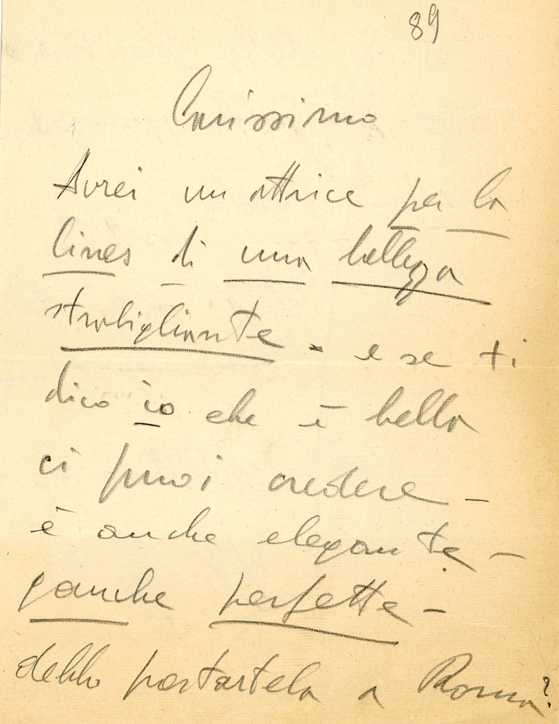 89
Carissimo
Avrei un attrice per la
lines di una bellezza
strabigliante - e se ti
dico io che è bella
ci puoi credere -
è anche elegante -
gambe perfette -
debbo portartela a Roma?